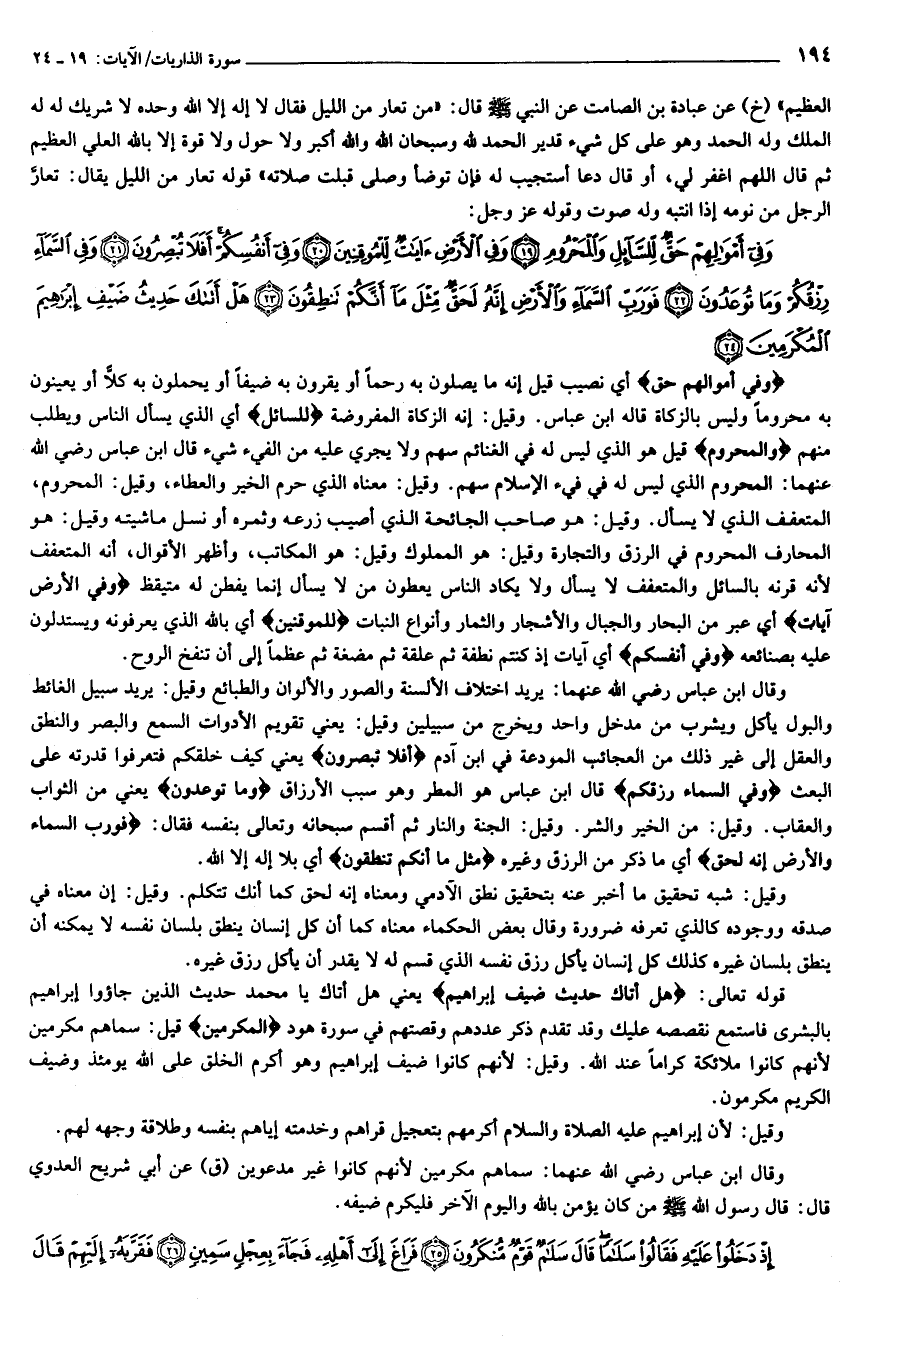 ١٩٤ سورة الذاريات/ الآيات: ١٩ ـ ٢٤
العظيم» (خ) عن عبادة بن الصامت عن النبي ﷺ قال: «من تعار من الليل فقال لا إله إلا الله وحده لا شريك له له
الملك وله الحمد وهو على كل شيء قدير الحمد لله وسبحان الله والله أكبر ولا حول ولا قوة إلا بالله العلي العظيم
ثم قال اللهم اغفر لي، أو قال دعا أستجيب له فإن توضأ وصلى قبلت صلاته» قوله تعار من الليل يقال: تعارَّ
الرجل من نومه إذا انتبه وله صوت وقوله عز وجل:
وَفِىٓ أَمْوَٰلِهِمْ حَقٌّ لِّلسَّآئِلِ وَٱلْمَحْرُومِ ﴿١٩﴾ وَفِى ٱلْأَرْضِ ءَايَٰتٌ لِّلْمُوقِنِينَ ﴿٢٠﴾ وَفِىٓ أَنفُسِكُمْ ۚ أَفَلَا تُبْصِرُونَ ﴿٢١﴾ وَفِى ٱلسَّمَآءِ
رِزْقُكُمْ وَمَا تُوعَدُونَ ﴿٢٢﴾ فَوَرَبِّ ٱلسَّمَآءِ وَٱلْأَرْضِ إِنَّهُۥ لَحَقٌّ مِّثْلَ مَآ أَنَّكُمْ تَنطِقُونَ ﴿٢٣﴾ هَلْ أَتَىٰكَ حَدِيثُ ضَيْفِ إِبْرَٰهِيمَ
ٱلْمُكْرَمِينَ ﴿٢٤﴾
﴿وفي أموالهم حق﴾ أي نصيب قيل إنه ما يصلون به رحماً أو يقرون به ضيفاً أو يحملون به كلاًّ أو يعينون
به محروماً وليس بالزكاة قاله ابن عباس. وقيل: إنه الزكاة المفروضة ﴿للسائل﴾ أي الذي يسأل الناس ويطلب
منهم ﴿والمحروم﴾ قيل هو الذي ليس له في الغنائم سهم ولا يجري عليه من الفيء شيء قال ابن عباس رضي الله
عنهما: المحروم الذي ليس له في فيء الإسلام سهم. وقيل: معناه الذي حرم الخير والعطاء، وقيل: المحروم،
المتعفف الذي لا يسأل. وقيل: هو صاحب الجائحة الذي أصيب زرعه وثمره أو نسل ماشيته وقيل: هو
المحارف المحروم في الرزق والتجارة وقيل: هو المملوك وقيل: هو المكاتب، وأظهر الأقوال، أنه المتعفف
لأنه قرنه بالسائل والمتعفف لا يسأل ولا يكاد الناس يعطون من لا يسأل إنما يفطن له متيقظ ﴿وفي الأرض
آيات﴾ أي عبر من البحار والجبال والأشجار والثمار وأنواع النبات ﴿للموقنين﴾ أي بالله الذي يعرفونه ويستدلون
عليه بصنائعه ﴿وفي أنفسكم﴾ أي آيات إذ كنتم نطفة ثم علقة ثم مضغة ثم عظماً إلى أن تنفخ الروح.
وقال ابن عباس رضي الله عنهما: يريد اختلاف الألسنة والصور والألوان والطبائع وقيل: يريد سبيل الغائط
والبول يأكل ويشرب من مدخل واحد ويخرج من سبيلين وقيل: يعني تقويم الأدوات السمع والبصر والنطق
والعقل إلى غير ذلك من العجائب المودعة في ابن آدم ﴿أفلا تبصرون﴾ يعني كيف خلقكم فتعرفوا قدرته على
البعث ﴿وفي السماء رزقكم﴾ قال ابن عباس هو المطر وهو سبب الأرزاق ﴿وما توعدون﴾ يعني من الثواب
والعقاب. وقيل: من الخير والشر. وقيل: الجنة والنار ثم أقسم سبحانه وتعالى بنفسه فقال: ﴿فورب السماء
والأرض إنه لحق﴾ أي ما ذكر من الرزق وغيره ﴿مثل ما أنكم تنطقون﴾ أي بلا إله إلا الله.
وقيل: شبه تحقيق ما أخبر عنه بتحقيق نطق الآدمي ومعناه إنه لحق كما أنك تتكلم. وقيل: إن معناه في
صدقه ووجوده كالذي تعرفه ضرورة وقال بعض الحكماء معناه كما أن كل إنسان ينطق بلسان نفسه لا يمكنه أن
ينطق بلسان غيره كذلك كل إنسان يأكل رزق نفسه الذي قسم له لا يقدر أن يأكل رزق غيره.
قوله تعالى: ﴿هل أتاك حديث ضيف إبراهيم﴾ يعني هل أتاك يا محمد حديث الذين جاؤوا إبراهيم
بالبشرى فاستمع نقصصه عليك وقد تقدم ذكر عددهم وقصتهم في سورة هود ﴿المكرمين﴾ قيل: سماهم مكرمين
لأنهم كانوا ملائكة كراماً عند الله. وقيل: لأنهم كانوا ضيف إبراهيم وهو أكرم الخلق على الله يومئذ وضيف
الكريم مكرمون.
وقيل: لأن إبراهيم عليه الصلاة والسلام أكرمهم بتعجيل قراهم وخدمته إياهم بنفسه وطلاقة وجهه لهم.
وقال ابن عباس رضي الله عنهما: سماهم مكرمين لأنهم كانوا غير مدعوين (ق) عن أبي شريح العدوي
قال: قال رسول الله ﷺ من كان يؤمن بالله واليوم الآخر فليكرم ضيفه.
إِذْ دَخَلُوا۟ عَلَيْهِ فَقَالُوا۟ سَلَٰمًا ۖ قَالَ سَلَٰمٌ قَوْمٌ مُّنكَرُونَ ﴿٢٥﴾ فَرَاغَ إِلَىٰٓ أَهْلِهِۦ فَجَآءَ بِعِجْلٍ سَمِينٍ ﴿٢٦﴾ فَقَرَّبَهُۥٓ إِلَيْهِمْ قَالَ